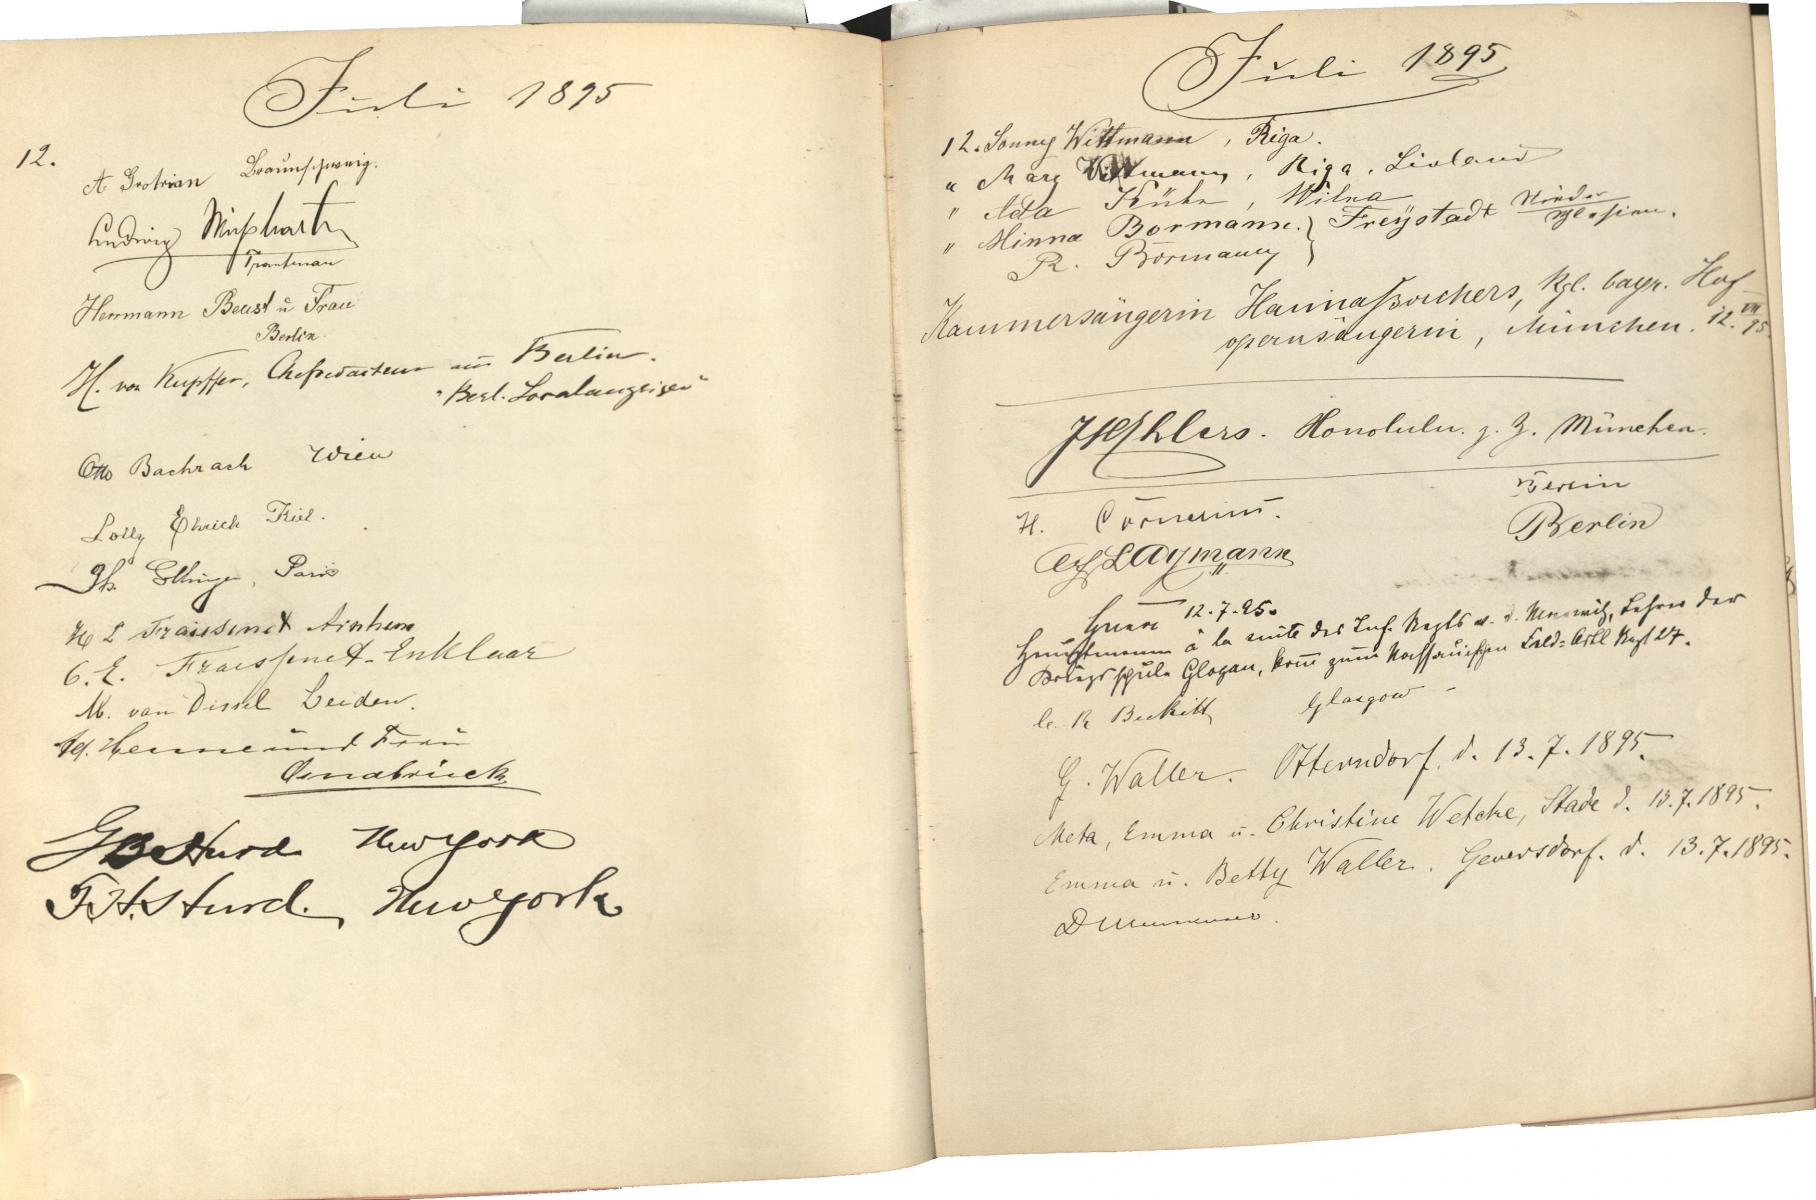 Juli 1895
12.
A Grotrian Braunschweig.
Ludwig
Herrmann Beust u Frau
Berlin.
H. von Kupffer, Chefredacteur aus Berlin.
"Berl. Localanzeiger"
Otto Bachrach Wien
Lolly Ehrich Kiel.
Ettlinger, Paris
H L Fraissinet Arnhem
C. E. Fraissinet-Enklaar
M. van Dissel Leiden.
Ad. Henne und Frau
Osnabrück
G B Hurd New York
F. H. Hurd. New York
Juli 1895
12. Sonny Wittmann, Riga.
" Mary Wittmann, Riga, Livland
" Ada, Wilna
" Minna Bormann. } Freystadt Nieder
R. Bormann schlesien.
Kammersängerin Hanna Borchers, Kgl. bayr. Hof
opernsängerin, München. 12. VII 95.
Ehlers. Honolulu. z. Z. München.
H. Berlin
Berlin
12.7.95.
Hauptmann à la suite des Inf. Regts Lehrer der
Kriegsschule Glogau, zum Nassauischen Feld-Artl Regt 27.
Beckitt Glasgow
G. Waller. Otterndorf, d. 13.7.1895.
Meta, Emma u. Christine Wetcke, Stade d. 13.7.1895.
Emma u. Betty Waller. Geversdorf. d. 13.7.1895.